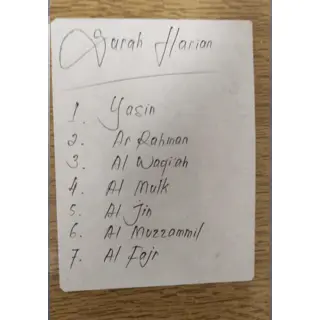 Surah Harian
1. Yasin
2. Ar Rahman
3. Al Waqiah
4. Al Mulk
5. Al Jin
6. Al Muzzammil
7. Al Fajr